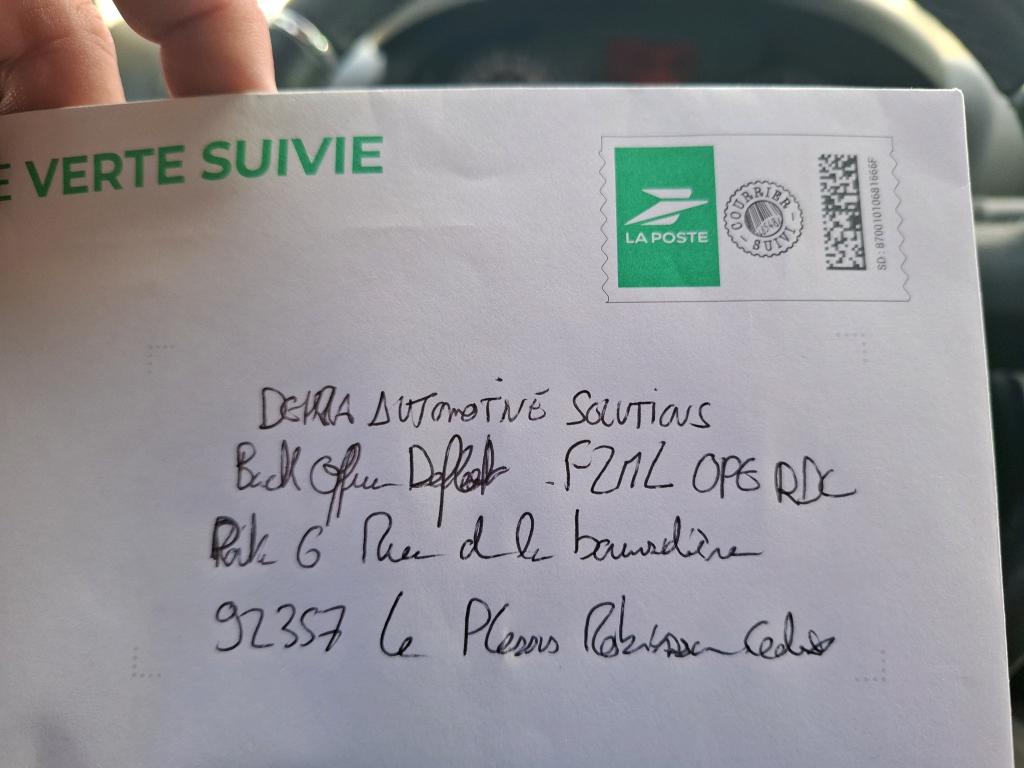 E VERTE SUIVIE
LA POSTE
COURRIER SUIVI
SD : 87001010681666F
DEKRA AUTOMOTIVE SOLUTIONS
Back Office Defleet - F2ML OPE RDC
6 Rue de la
92357 Le Plessis Robinson Cedex